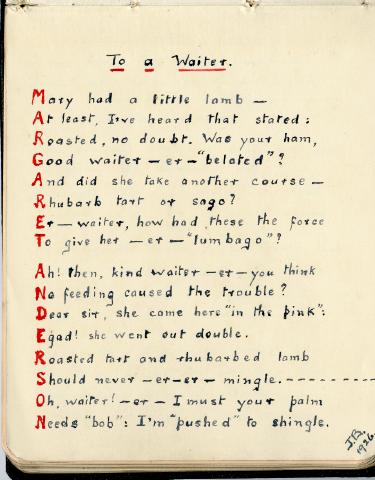 To a Waiter.
Mary had a little lamb —
At least, I've heard that stated:
Roasted, no doubt. Was your ham,
Good waiter — er — "belated"?
And did she take another course —
Rhubarb tart or sago?
Er — waiter, how had these the force
To give her — er — "lumbago"?
Ah! then, kind waiter — er — you think
No feeding caused the trouble?
Dear sir, she came here "in the pink":
Egad! she went out double.
Roasted tart and rhubarbed lamb
Should never — er — er — mingle. - - - - - - - - - -
Oh, waiter! — er — I must your palm
Needs "bob": I'm "pushed" to shingle.
J.B.
1926